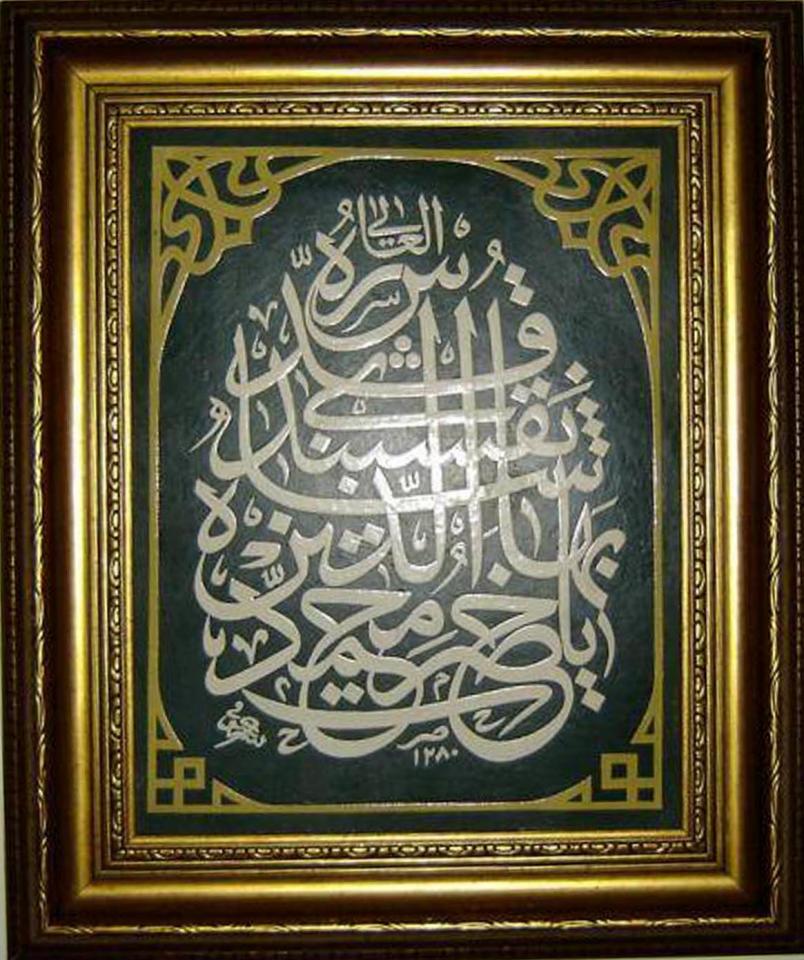 يا حضرت محمد
بهاء الدين
شاه نقشبند
قدس
سره العالي
١٢٨٠